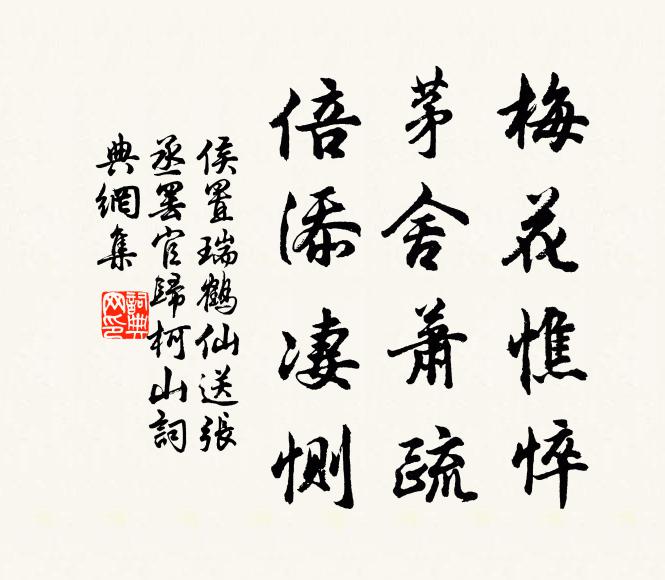 梅花憔悴
茅舍蕭疏
倍添凄惻
侯置瑞鶴仙送張
丞罷官歸柯山詞
典網集
詞典
网印